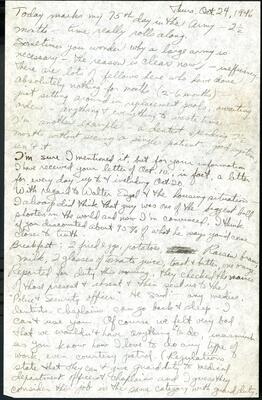 Thurs. Oct 24, 1946
Today marks my 75th day in the Army - 2½
months - time really rolls along.
Sometimes you wonder why a large army is
necessary - the reason is clear now - inefficiency.
There are lots of fellows here who have done
absolutely nothing for months (2-6 months)
just sitting around in replacement pools, awaiting
orders & anything & everything to waste time.
I'm another example - a dentist spending
months without seeing a single patient, good system
isn't it
I'm sure I mentioned it, but for your information
I have received your letter of Oct. 10, in fact, a letter
for every day up to & including Oct 20
With regard to Walter & the housing situation
I always did think that guy was one of the biggest bull
shooters in the world and now I'm convinced. I think
if you discounted about 75% of what he says you'd come
closer to truth
Breakfast: 2 fried eggs, potatoes, raisin bran,
milk, 2 glasses of tomato juice, bread & butter, no
Reported for duty this morning. They checked the names
of those present & absent & then sent us to the
"Police & Security officer" He said, any medics
dentists, chaplains can go back & sleep
can't use you. Of course we felt very bad
that we wouldn't have anything to do, inasmuch
as you know how I love to do any type of
work, even courtesy patrol. (Regulations
state that they can't give guard duty to medical
department officers & chaplains and I guess they
consider the job in the same category with guard duty.